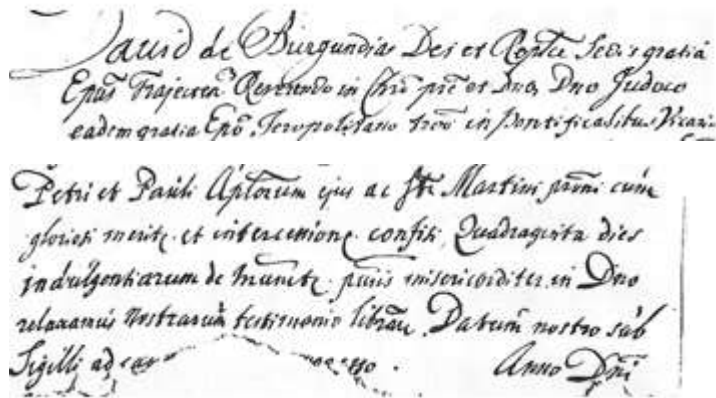 David de Burgundia Dei et Aplice Sedis gratia
Epus Trajecten Reverendo in Chro pre et Dno Dno Judoco
eadem gratia Epo Jeropolitano nro in Pontificalibus Vicario
Petri et Pauli Aplorum ejus ac Sti Martini prmi cum
gloriosi merit. et intercessione confisi Quadraginta dies
indulgentiarum de Iniunct. pniis misericorditer in Dno
relaxamus nostrarum testimonio librau. Datum nostro sub
Sigilli ad Anno Dni